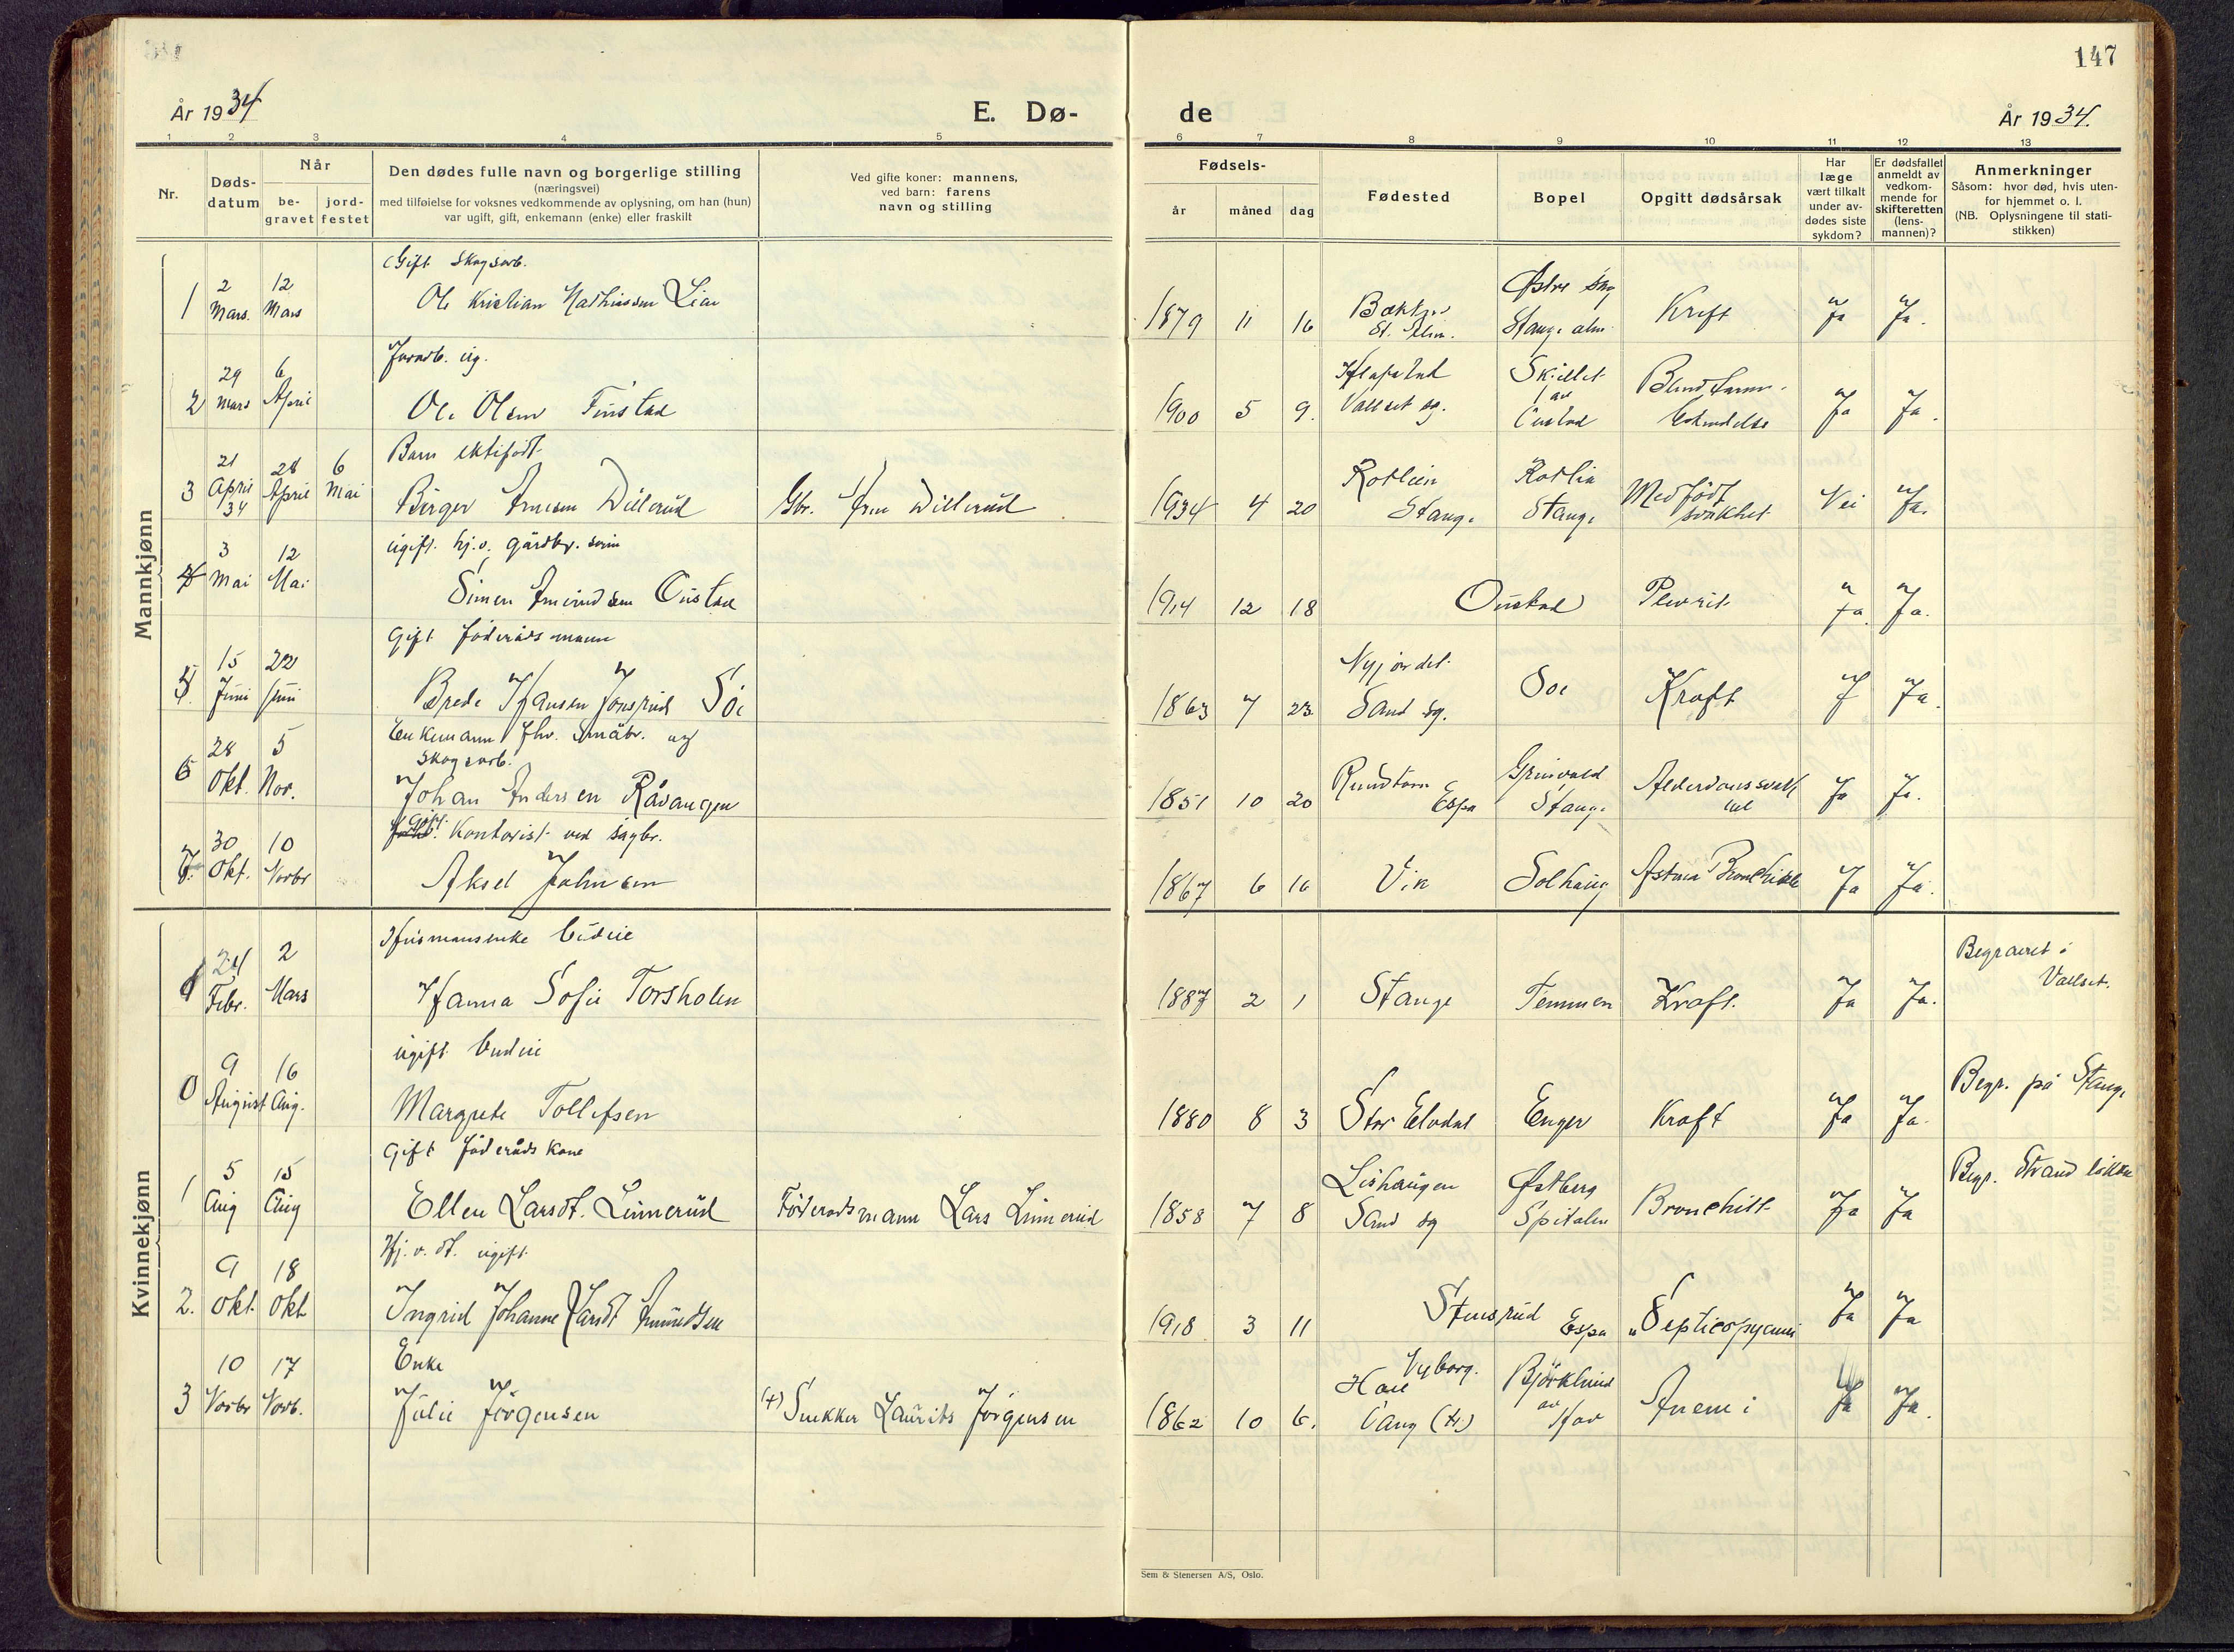 147
År 1934
E. Dø-
de
År 1934.
1 2 3 4 5 6 7 8 9 10 11 12 13
Nr.
Døds-
datum
Når
be-
gravet
jord-
festet
Den dødes fulle navn og borgerlige stilling
(næringsvei)
med tilføielse for voksnes vedkommende av oplysning, om han (hun)
var ugift, gift, enkemann (enke) eller fraskilt
Ved gifte koner: mannens,
ved barn: farens
navn og stilling
Fødsels-
år
måned
dag
Fødested
Bopel
Opgitt dødsårsak
Har
læge
vært tilkalt
under av-
dødes siste
sykdom?
Er dødsfallet
anmeldt av
vedkom-
mende for
skifteretten
(lens-
mannen)?
Anmerkninger
Såsom: hvor død, hvis uten-
for hjemmet o. l.
(NB. Oplysningene til stati-
stikken)
Mannkjønn
Gift skogsarb.
1 2 Mars. 12 Mars
Ole Kristian Mathiassen Lien
1879 11 16
St. Alm.
Østre
Stange alm.
Kreft Ja Ja.
ug.
2 29 Mars 6 April
Ole Olsen Finstad
1900 5 9.
Vallset sg.
Skillet
av
Oustad
Ja Ja.
Barn ektefødt
3 21 April 34 28 April 6 Mai
Birger Arnesen Dillerud
Gbr. Arne Dillerud
1934 4 20
Rotlien
Stange
Rotlia
Stange
Medfødt
svakhet
Nei Ja.
ugift. hj.v. gårdbr. sønn
4 3 Mai 12 Mai
Simen Amundsen Oustad
1914 12 18
Oustad
Plevrit Ja. Ja.
Gift føderådsmann
5. 15 Juni 22 Juni
Brede Hansen Jonsrud Soe
1863 7 23
Nyjordet
Sand sg.
Soe
Kræft J Ja.
Enkemann fhv. småbr. og
skogsarb.
6 28 Okt. 5 Nov.
Johan Andersen Råvangen
1851 10 20
Rundtom
Espa
Grinvold
Stange
Alderdomssvak
het
Ja Ja.
Gift
Kontorist ved sagbr.
7. 30 Okt. 10 Novbr
Aksel Johnsen
1867 6 16
Vik
Solhaug
Astma Bronchitt
Ja Ja.
Kvinnekjønn
Husmannsenke budeie
24 Febr. 2 Mars
Hanna Sofie Torsholen
1887 2 1
Stange
Temmen
Kræft. Ja Ja.
Begravet i
Vallset.
ugift budeie
0 9 August 16 Aug.
Margrete Tollefsen
1880 8 3
Stor Elvdal
Enger
Kræft Ja Ja.
Begr. på Stange
Gift føderåds kone
1 5 Aug 15 Aug
Ellen Larsdt. Linnerud
Føderådsmann Lars Linnerud
1858 7 8
Lishaugen
Sand sg
Østberg
Spitalen
Bronchitt Ja Ja
Begr. Strandlykkja
Hj. v. dt. ugift
2. 9 Okt. 18 Okt
Ingrid Johanne Larsdt Amundsen
1918 3 11
Stensrud
Espa
"Septicopyemi
Ja Ja
Enke
3 10 Novbr 17 Novb.
Julie Jørgensen
(+) Snekker Laurits Jørgensen
1862 10 6.
Vyborg.
Vang (H.)
Björklund
av
Hov
Anemi Ja Ja.
Sem & Stenersen A/S, Oslo.